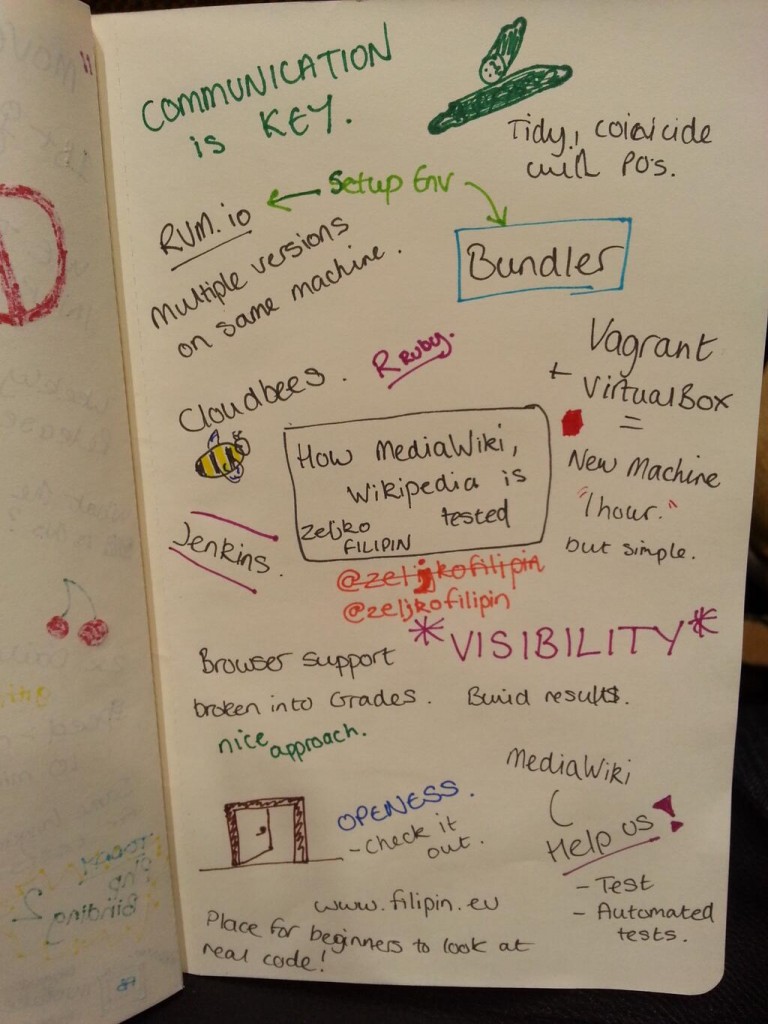 COMMUNICATION
is KEY.
Tidy, coincide
with PO's.
Setup Env
RVM.io
Multiple versions
on same machine.
Bundler
Cloudbees.
R RUBY.
Vagrant
+ VirtualBox
=
New Machine
"1hour."
but simple.
How MediaWiki,
Wikipedia is
tested
Zeljko
FILIPIN
Jenkins.
@zeljkofilipin
@zeljkofilipin
*VISIBILITY*
Browser support
broken into Grades.
Build results.
nice approach.
MediaWiki
Help us!
- Test
- Automated
tests.
OPENESS.
- Check it
out.
www.filipin.eu
Place for beginners to look at
real code!